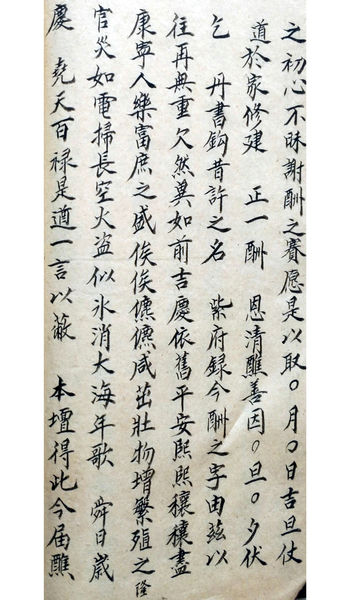 之初心不昧謝酬之賽愿是以取○月○日吉旦仗
道於家修建　正一酬　恩清醮善因○旦○夕伏
乞　丹書鈎昔許之名　紫府録今酬之字由玆以
往再無重欠然奠如前吉慶依舊平安熙熙穰穰盡
康寧人樂富庶之盛俟俟儦儦咸茁壯物增繁殖之隆
官災如電掃長空火盗似氷消大海年歌　舜日歲
慶　堯天百禄是遒一言以蔽　本壇得此今届醮